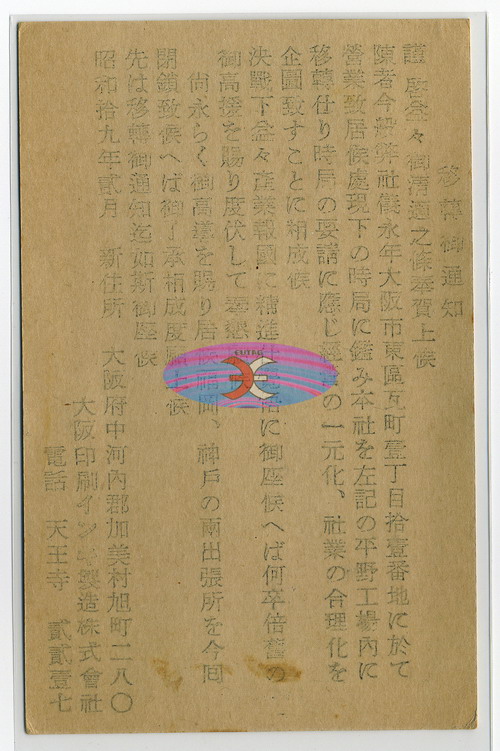 移轉御通知
謹啓益々御清適之條奉賀上候
陳者今般弊社儀永年大阪市東區瓦町壹丁目拾壹番地に於て
營業致居候處現下の時局に鑑み本社を左記の平野工場內に
移轉仕り時局の要請に應じ經 の一元化、社業の合理化を
企圖致すことに相成候
決戰下益々產業報國に精進 に御座候へば何卒倍舊の
御高援を賜り度伏して奉懇
尙永らく御高 を賜り居 候福岡、神戶の兩出張所を今回
閉鎖致候へば御了承相成度 候
先は移轉御通知迄如斯御座候
昭和拾九年貳月 新住所 大阪府中河內郡加美村旭町二八〇
大阪印刷インキ製造株式會社
電話 天王寺 貳貳壹七